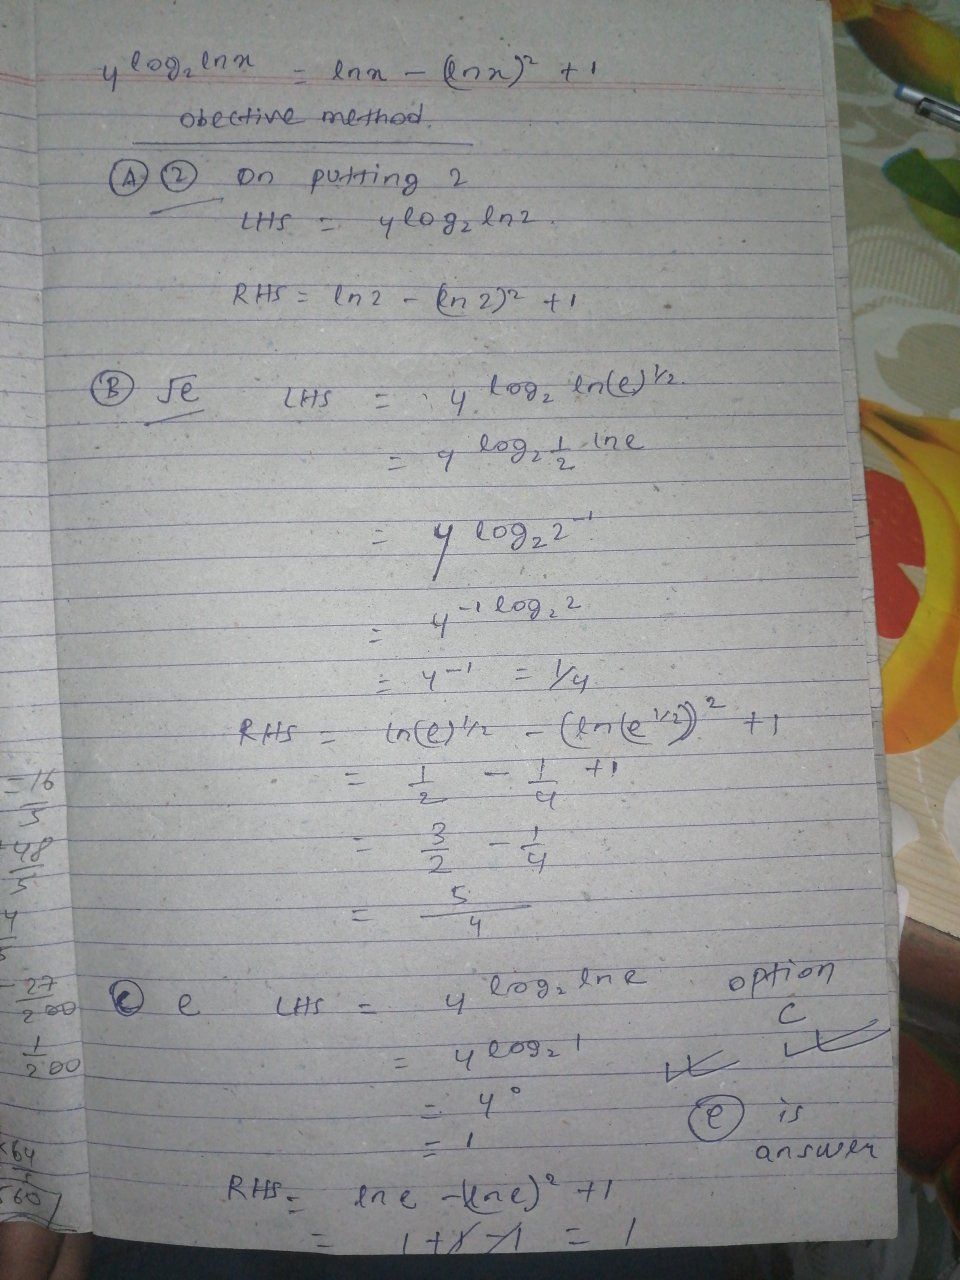 4^{log₂ lnx} = lnx - (lnx)² + 1
obective method.
(A) (2) On putting 2
LHS = 4 log₂ ln2.
RHS = ln2 - (ln2)² + 1
(B) √e LHS = 4^{log₂ ln(e)^{1/2}}.
= 4^{log₂ 1/2 lne}
= 4^{log₂ 2⁻¹}
= 4^{-1 log₂ 2}
= 4⁻¹ = 1/4
RHS = ln(e)^{1/2} - (ln(e^{1/2}))² + 1
= 1/2 - 1/4 + 1
= 3/2 - 1/4
= 5/4
(C) e LHS = 4^{log₂ lne}
= 4^{log₂ 1}
= 4⁰
= 1
RHS = lne - (lne)² + 1
= 1 + 1 - 1 = 1
option
C
(e) is
answer
= 16/5
48/5
27/200
1/200
×64
560